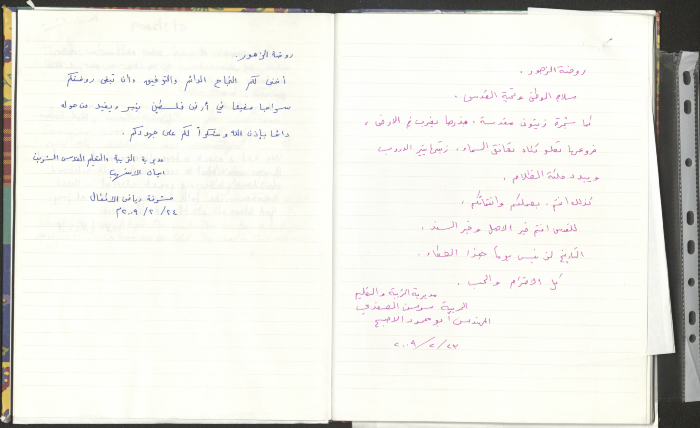 روضة الزهور.
سلام الوطن وتحية القدس.
كما شجرة زيتون مقدسة، جذرها يضرب في الارض،
فروعها تعلو كأنه تعانق السماء، زيتها ينير الدروب
ويبدد حلكة الظلام.
كذلك انتم، بعملكم وانتمائكم،
للقدس انتم خير الاهل وخير السند،
التاريخ لن ينسى يوماً هذا العطاء.
كل الاحترام والحب.
مديرية التربية والتعليم
المربية سوسن الصفدي
المهندس أبو محمود
٢٠٠٩/٢/٢٣
روضة الزهور.
أتمنى لكم النجاح الدائم والتوفيق وأن تبقى روضتكم
سراجا مضيئا في أرض فلسطين ينير ويفيد من حوله
دائما بإذن الله وشكراً لكم على جهودكم.
مديرية التربية والتعليم القدس الشريف
مشرفة رياض الاطفال
٢٠٠٩/٢/٢٤م